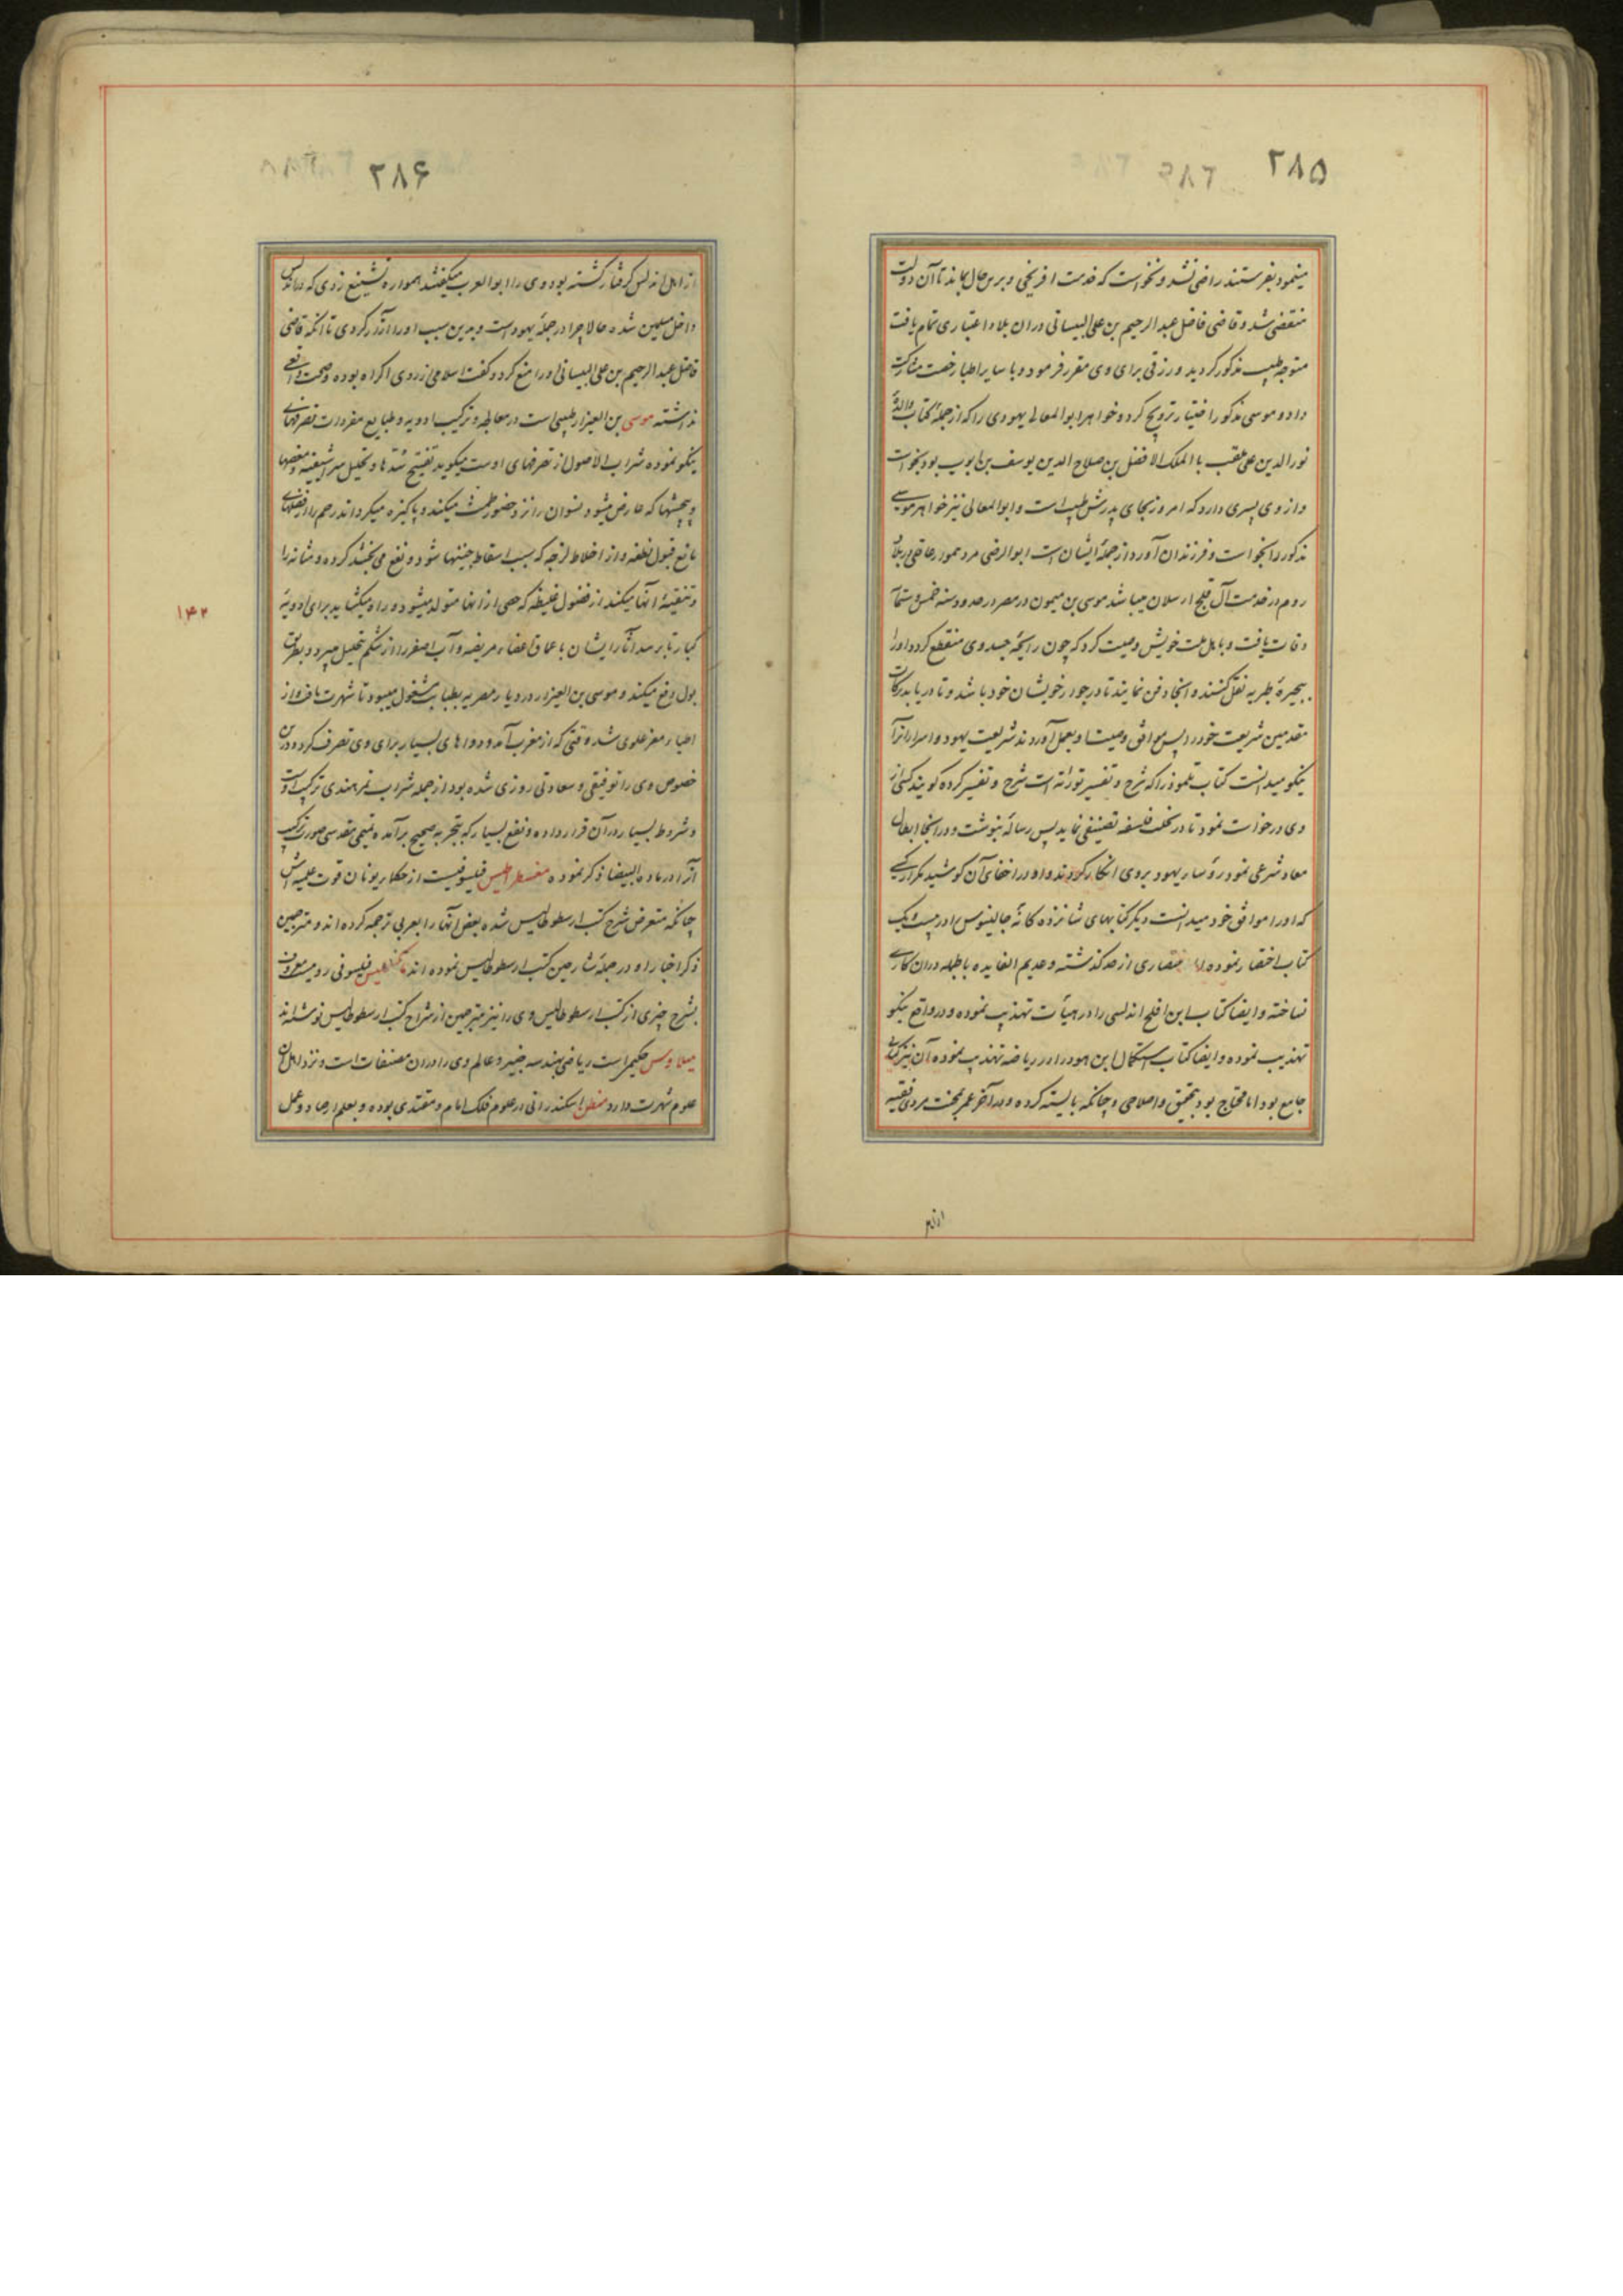 ۲۸۵
مینمود بفرستند راضی نشد و نخواست که خدمت افرنجی و برین حال بماند تا آن دولت
منقضی شد و قاضی فاضل عبد الرحیم بن علی البیسانی در ان بلاد اعتباری تمام یافت
متوجه طبیب مذکور گردید و رزقی برای وی مقرر فرمود و با سایر اطبا رخصت مشارکت
داد و موسی مذکور اختیار ترویج کرد و خواهر ابو المعالی یهودی را که از جمله کتاب والدهٔ
نور الدین علی ملقب با الملک الافضل بن صلاح الدین یوسف بن ایوب بود بخواست
و از وی پسری دارد که امروز بجای پدرش طبیب است و ابو المعالی نیز خواهر موسی
مذکور را بخواست و فرزندان آورد از جملهٔ ایشان است ابو الرضی مرد
روم در خدمت آل قلج ارسلان میباشد موسی بن میمون در مصر در حدود سنه خمس و ستمآ
وفات یافت و باهل بیت خویش وصیت کرد که چون رایحهٔ جسد وی منقطع گردد او را
ببحیرهٔ طبریه نقل کنند و انجا دفن نمایند تا در جوار خویشان خود باشد و تا دریابد برکات
مقدمین شریعت خود را پس موافق وصیت او بعمل آوردند شریعت یهود و اسرار انرا
نیکو میدانست کتاب تلموذ را که شرح و تفسیر توراته است شرح و تفسیر کرده گویند کسی از
وی درخواست نمود تا در نحلت فلسفه تصنیفی نماید پس رساله بنوشت و در انجا ابطال
معاد شرعی نمود رؤساء یهود بر وی انکار کردند و او در اخفای آن کوشید مگر از کسی
که او را موافق خود میدانست دیگر کتابهای شانزده کانهٔ جالینوس را در بیست و یک
کتاب اختصار نموده اما اختصاری از حد گذشته و عدیم الفایده باطله در ان کاری
نساخته و ایضا کتاب ابن افلح اندلسی را در هیأت تهذیب نموده و در واقع نیکو
تهذیب نموده و ایضا کتاب استکمال ابن هود را در ریاضه تهذیب نموده آن نیز کتابی
جامع بود اما محتاج بود بتحقیق و اصلاحی و چنانکه بایسته کرده و در آخر عمر بمحنت مردی فقیه
از اهل
۲۸۶
از اهل اندلس گرفتار گشته بود وی را ابو العرب میگفتند همواره تشنیع زدی که در اندلس
داخل مسلمین شده حالا چرا در جملهٔ یهود است و بدین سبب او را آزار کردی تا انکه قاضی
فاضل عبد الرحیم بن علی البیسانی او را منع کرد و گفت اسلامی از روی اکراه بوده و صحت واقعی
نداشته موسی بن العیزار طبیبی است در معالجه و ترکیب ادویه و طبایع مفردات تصرفهای
نیکو نموده شراب الاصول از تصرفهای اوست میگوید تفتیح سدّها و تحلیل شراسیفیه و مغصها
و پیچشها که عارض میشود نسوان را نزد حضور طمث میکند و پاکیزه میگرداند رحم را از فضلهای
مانع قبول نطفه و از اخلاط لزجه که سبب اسقاط جنینها شود و نفع می بخشد کرده و مثانه را
و تنقیهٔ انها میکند از فضول غلیظه که حصی از انها متولد میشود و راه میگشاید برای ادویهٔ
کبار تا برسد آثار ایشان باعماق اعضاء مریضه و آب اصفر را از شکم تحلیل میبرد و بطریق
بول دفع میکند و موسی بن العیزار در دیار مصریه بطبابت مشغول میبود تا شهرت یافت و از
اطباء معز علوی شد وقتی که از مغرب آمد و دواهای بسیار برای وی تصرف کرد و درین
خصوص وی را توفیقی و سعادتی روزی شده بود از جمله شراب تمر هندی ترکیب اوست
و شروط بسیار در آن قرار داده و نفع بسیار که بتجربه صحیح برآمده تمیمی مقدسی صورت ترکیب
آنرا در مادة البیضا ذکر نموده مغسطراطیس فیلسوفیست از حکاء یونان قوت علمیه اش
چنانکه متعرض شرح کتب ارسطوطالیس شده بعضی انها را بعربی ترجمه کرده اند و مترجمین
ذکر اخبار او در جملهٔ شارحین کتب ارسطوطالیس نموده اند فیلسوفی رومیست معروف
بشرح چیزی از کتب ارسطوطالیس وی را نیز مترجمین از شراح کتب ارسطوطالیس نوشته اند
میلاوس حکیمی است ریاضی بهندسه خبیر و عالم وی را در ان مصنفات است و نزد اهل آن
علوم شهرت دارد اسکندرانی در علوم فلک امام و مقتدی بوده و بعلم ارصاد و عمل
۱۴۲